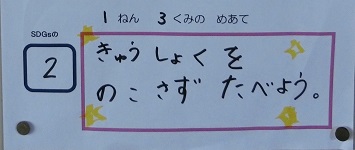 1 ねん 3 くみの めあて
SDGsの
2
きゅうしょくを
のこさず たべよう。